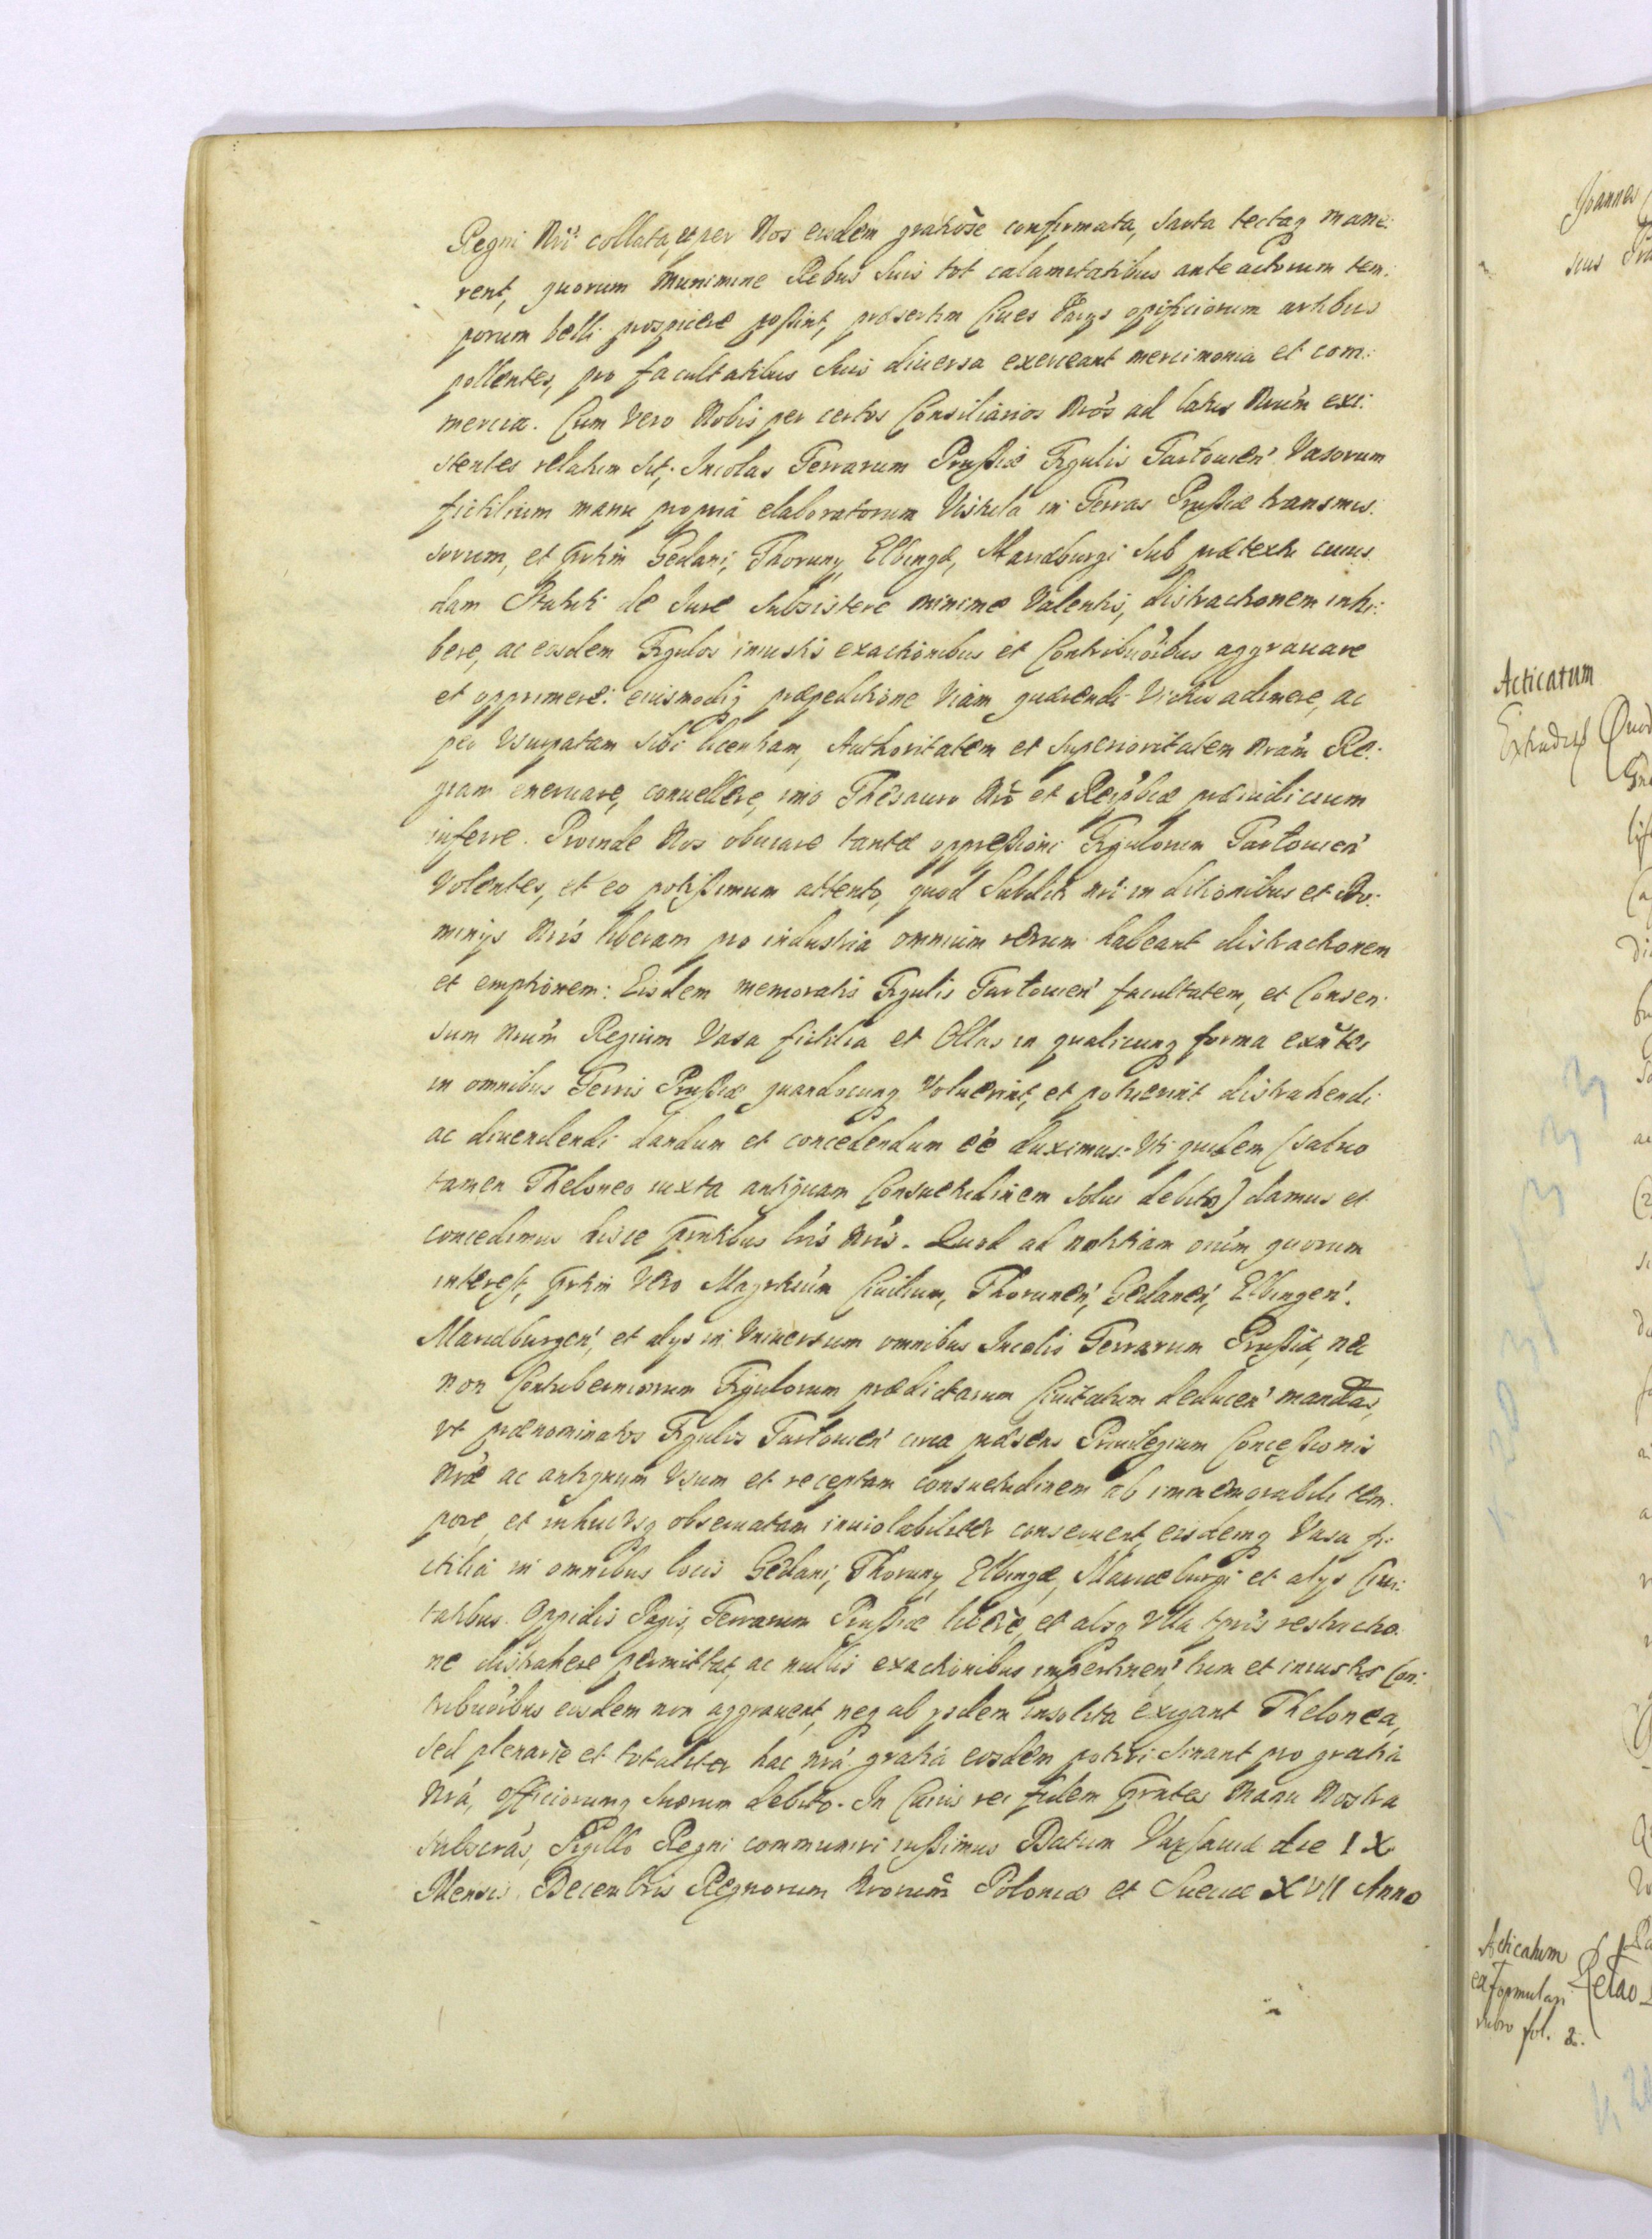 Regni Nri collata, et per Nos eisdem gratiosè confirmata, sarta tectaq mane:
rent, quorum munimine Rebus suis tot calamitatibus ante actorum tem:
porum belli prospicere possint, præsertim Ciues varys opificiorum artibus
pollentes, pro facultatibus suis diuersa exerceant mercimonia et com:
mercia. Cum vero Nobis per certos Consiliarios Nros ad latus Nrum exi:
stentes relatum sit, Incolas Terrarum Prussiæ Figulis Tartouien Vasorum
fictilium manu propria elaboratorum Vistula in Terras Prussiæ transmis:
sorum, et Gedani, Thoruny, Elbingæ, Mariæburgi sub prætextu cuius
dam Statuti de Jure subsistere minime Valentis, distractionem inhi:
bere, ac eosdem Figulos iniustis exactionibus et Contribuoibus aggrauare
et opprimere: eiusmodiq præpeditione viam quærendi victus adimere, ac
per vsurpatam sibi licentiam, Authoritatem et Superioritatem Nram Re:
giam eneruare, conuellere, imo Thesauro Nro et Reipblcæ præiudicium
inferre. Proinde Nos obuiare tantæ oppressioni Figulorum Tartouien
Volentes, et eo potissimum attento, quod Subditi nri in ditionibus et Do:
minys Nris liberam pro industria omnium rerum habeant distractionem
et emptionem: Eisdem memoratis Figulis Tartouien facultatem, et Consen:
sum Nrum Regium Vasa fictilia et Ollas in qualicunq forma exntes
in omnibus Terris Prussiæ quandocunq Voluerint, et potuerint distrahendi
ac diuendendi dandum et concedendum eë duximus: Vti quidem (saluo
tamen Theloneo iuxta antiquam Consuetudinem solui debito) damus et
concedimus hisce pntibus lris Nris. Quod ad notitiam oium quorum
interest, vero Magrtuum Ciuitum, Thorunen, Gedanen, Elbingen,
Mariæburgen, et alys in vniuersum omnibus Incolis Terrarum Prussiæ, nec
non Contuberniorum Figulorum prædictarum Ciuitatum deducen mandtas,
vt prænominatos Figulos Tartouien circa præsens Priuilegium Concessionis
Nræ ac antiquum vsum et receptam consuetudinem ab immemorabili tem:
pore et inhucusq obseruatam inuiolabiliter conseruent, eisdemq Vasa fi:
ctilia in omnibus locis Gedani, Thoruny, Elbingæ, Mariæburgi et alys Ciui:
tatibus Oppidis Pagis, Terrarum Prussiæ liberè, et absq vlla tpris restrictio:
ne distrahere permittat, ac nullis exactionibus impertinen tum et iniustis Con:
tribuoibus eosdem non aggrauent, neq ab ysdem insolita exigant Thelonea,
sed plenariè et totaliter hac nra gratia eosdem potiri sinant pro gratia
Nra, officiorumq suorum debito. In Cuius rei fidem pntes Manu Nostra
subscras, Sigillo Regni communiri iussimus Datum Varsauiæ die IX
Mensis Decembris Regnorum Nrorum Poloniæ et Sueciæ XVII Anno
Joannes
Acticatum
Extradit
Acticatum
ex formulari
rubro fol. 2.